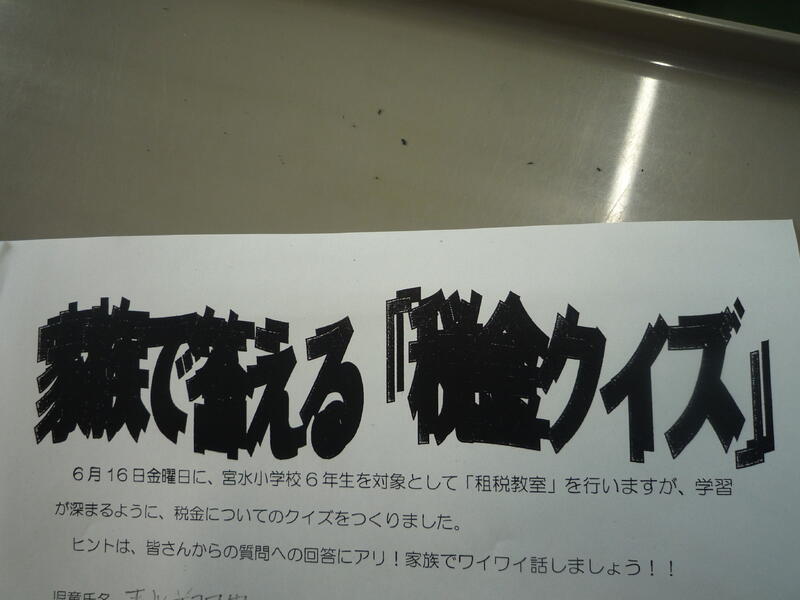 家族で答える『税金クイズ』
６月１６日金曜日に、宮水小学校６年生を対象として「租税教室」を行いますが、学習
が深まるように、税金についてのクイズをつくりました。
ヒントは、皆さんからの質問への回答にアリ！家族でワイワイ話しましょう！！
児童氏名